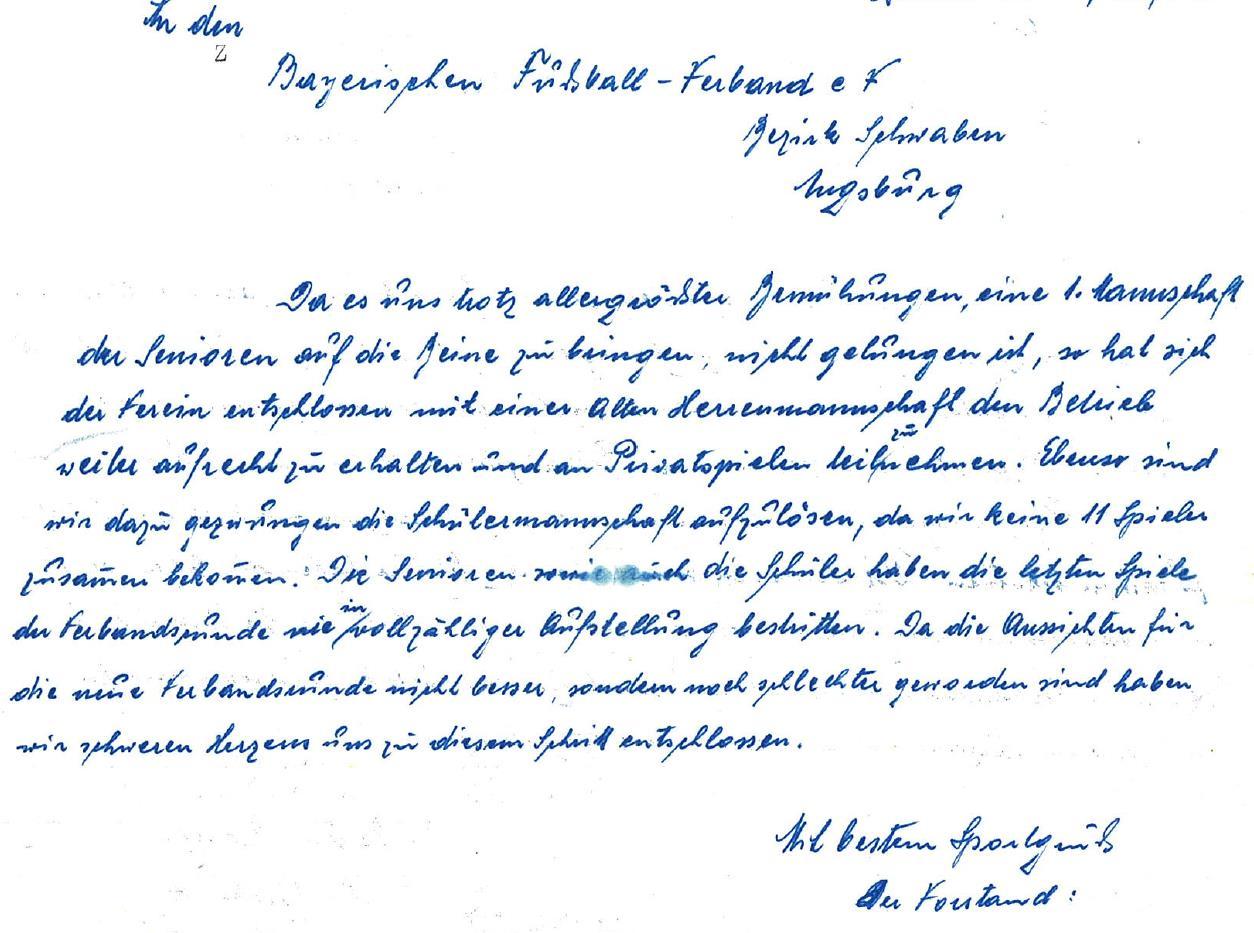 An den
Z
Bayerischen Fußball-Verband e V
Bezirk Schwaben
Augsburg
Da es uns trotz allergrößter Bemühungen, eine 1. Mannschaft
der Senioren auf die Beine zu bringen, nicht gelungen ist, so hat sich
der Verein entschlossen mit einer Alten Herrenmannschaft den Betrieb
zu
weiter aufrecht zu erhalten und an Privatspielen teilnehmen. Ebenso sind
wir dazu gezwungen die Schülermannschaft aufzulösen, da wir keine 11 Spieler
zusam̅en bekom̅en. Die Senioren sowie auch die Schüler haben die letzten Spiele
in
der Verbandsrunde nie vollzähliger Aufstellung bestritten. Da die Aussichten für
die neue Verbandsrunde nicht besser, sondern noch schlechter geworden sind haben
wir schweren Herzens uns zu diesem Schritt entschlossen.
Mit bestem Sportgruß
Der Vorstand: